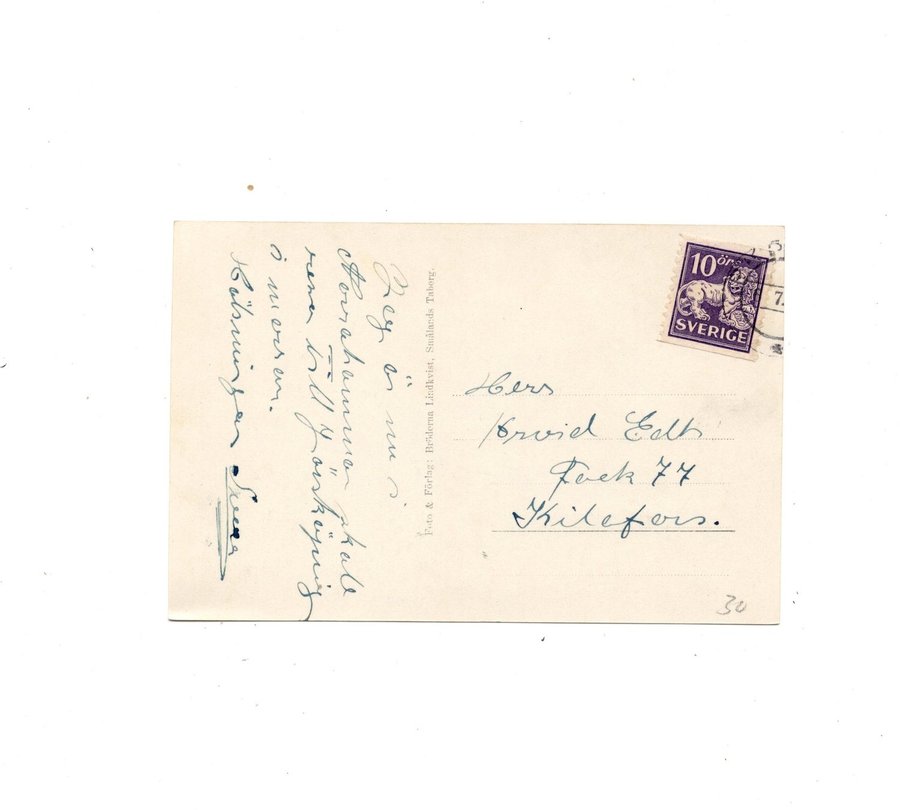 Jag är nu i
Norrahammar skall
resa till Jönköping
i morgon.
Hälsningar
Foto & Förlag: Bröderna Lindkvist, Smålands Taberg.
10 öre
SVERIGE
7.
Herr
Arvid Edh
Fack 77
Kilafors.
30